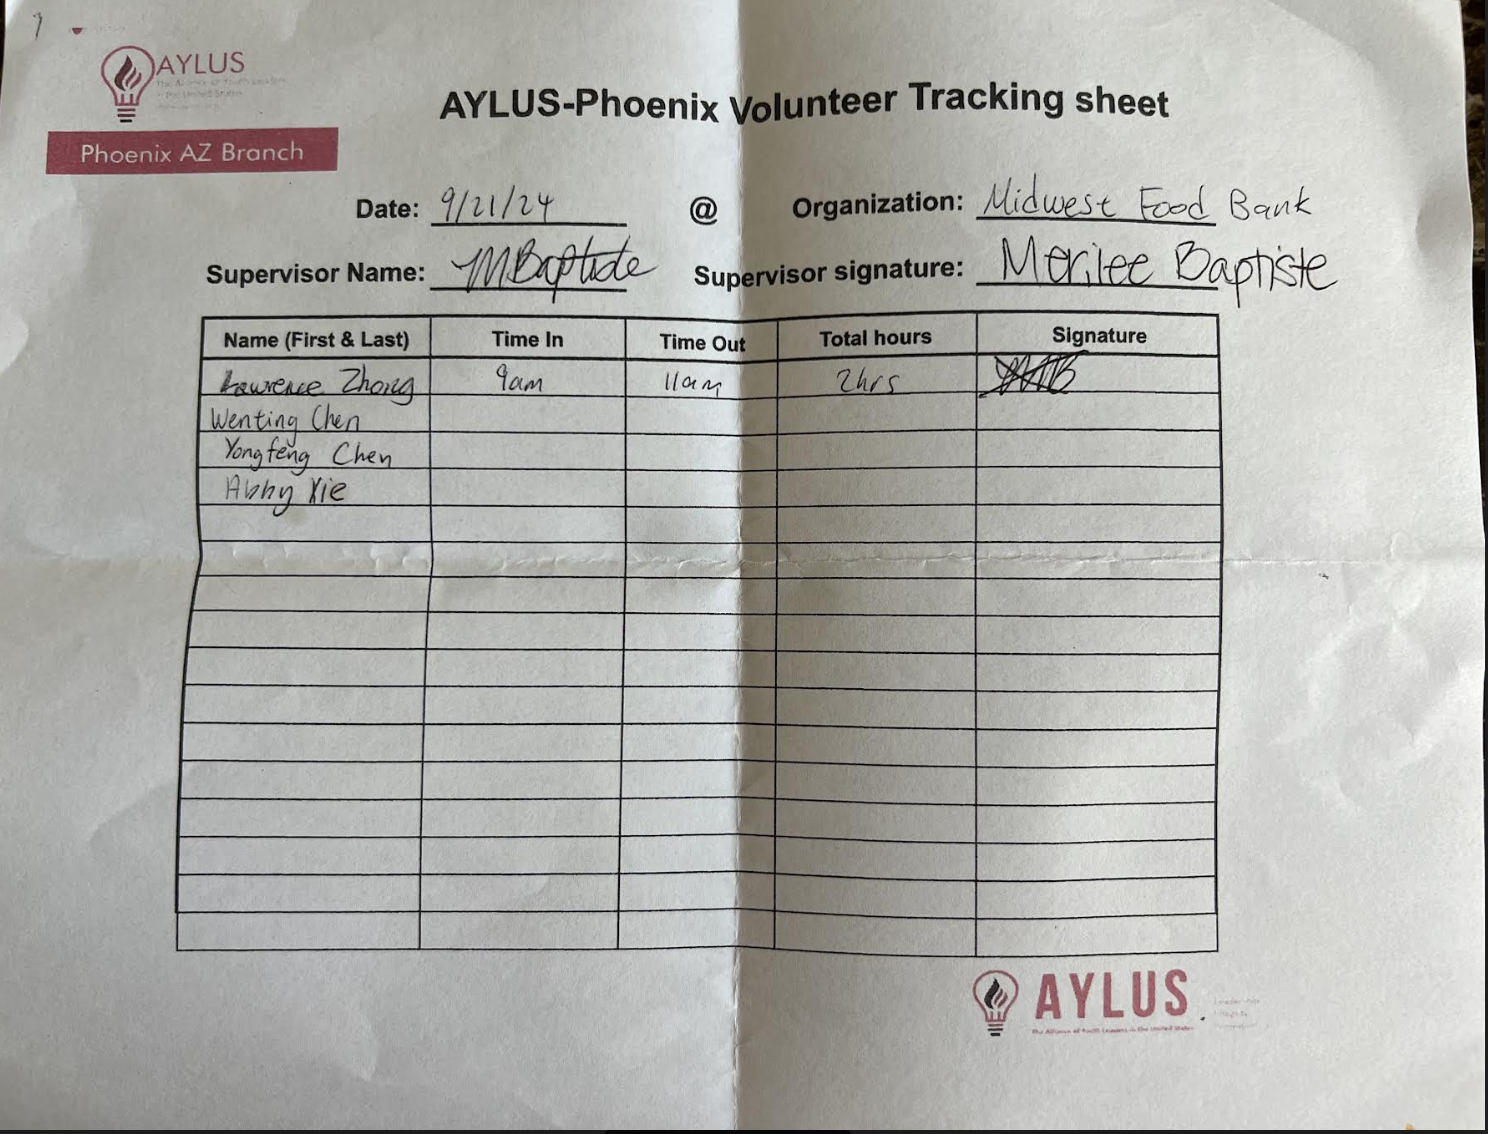 AYLUS
Phoenix AZ Branch
AYLUS-Phoenix Volunteer Tracking sheet
Date: 9/21/24 @ Organization: Midwest Food Bank
Supervisor Name: MBaptiste Supervisor signature: Merilee Baptiste
Name (First & Last) Time In Time Out Total hours Signature
Lawrence Zhong 9am 11am 2hrs
Wenting Chen
Yongfeng Chen
Abby Xie
AYLUS
The Alliance of Youth Leaders in the United States